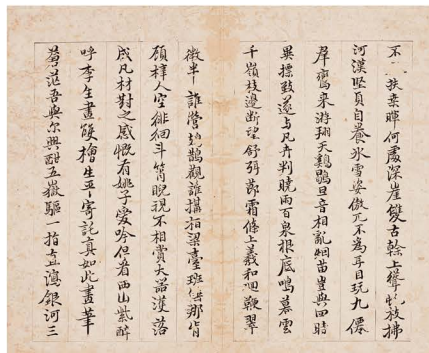 不 扶桑暉何處深崖雙古榦上聳 枝拂
河漢堅貞自養氷雪姿傲兀不為耳目玩九僊
羣鸞来游翔天鷄鶡旦音相亂烟苗豈與四時
異標致遂与凡卉判曉雨百泉根底鳴暮雲
千嶺枝邊斷望舒弭節霜條上羲和迴鞭翠
微半誰營 鵲觀誰搆栢梁臺班 那肯
顧梓人空徘徊斗筲睨現不相賞大器濩落
成凡材對之感慨有姚子愛吟但看西山紫醉
呼李生畫雙檜生平寄託真如此畫筆
蒼茫吾與尔興酣五嶽驅 指直瀉銀河三